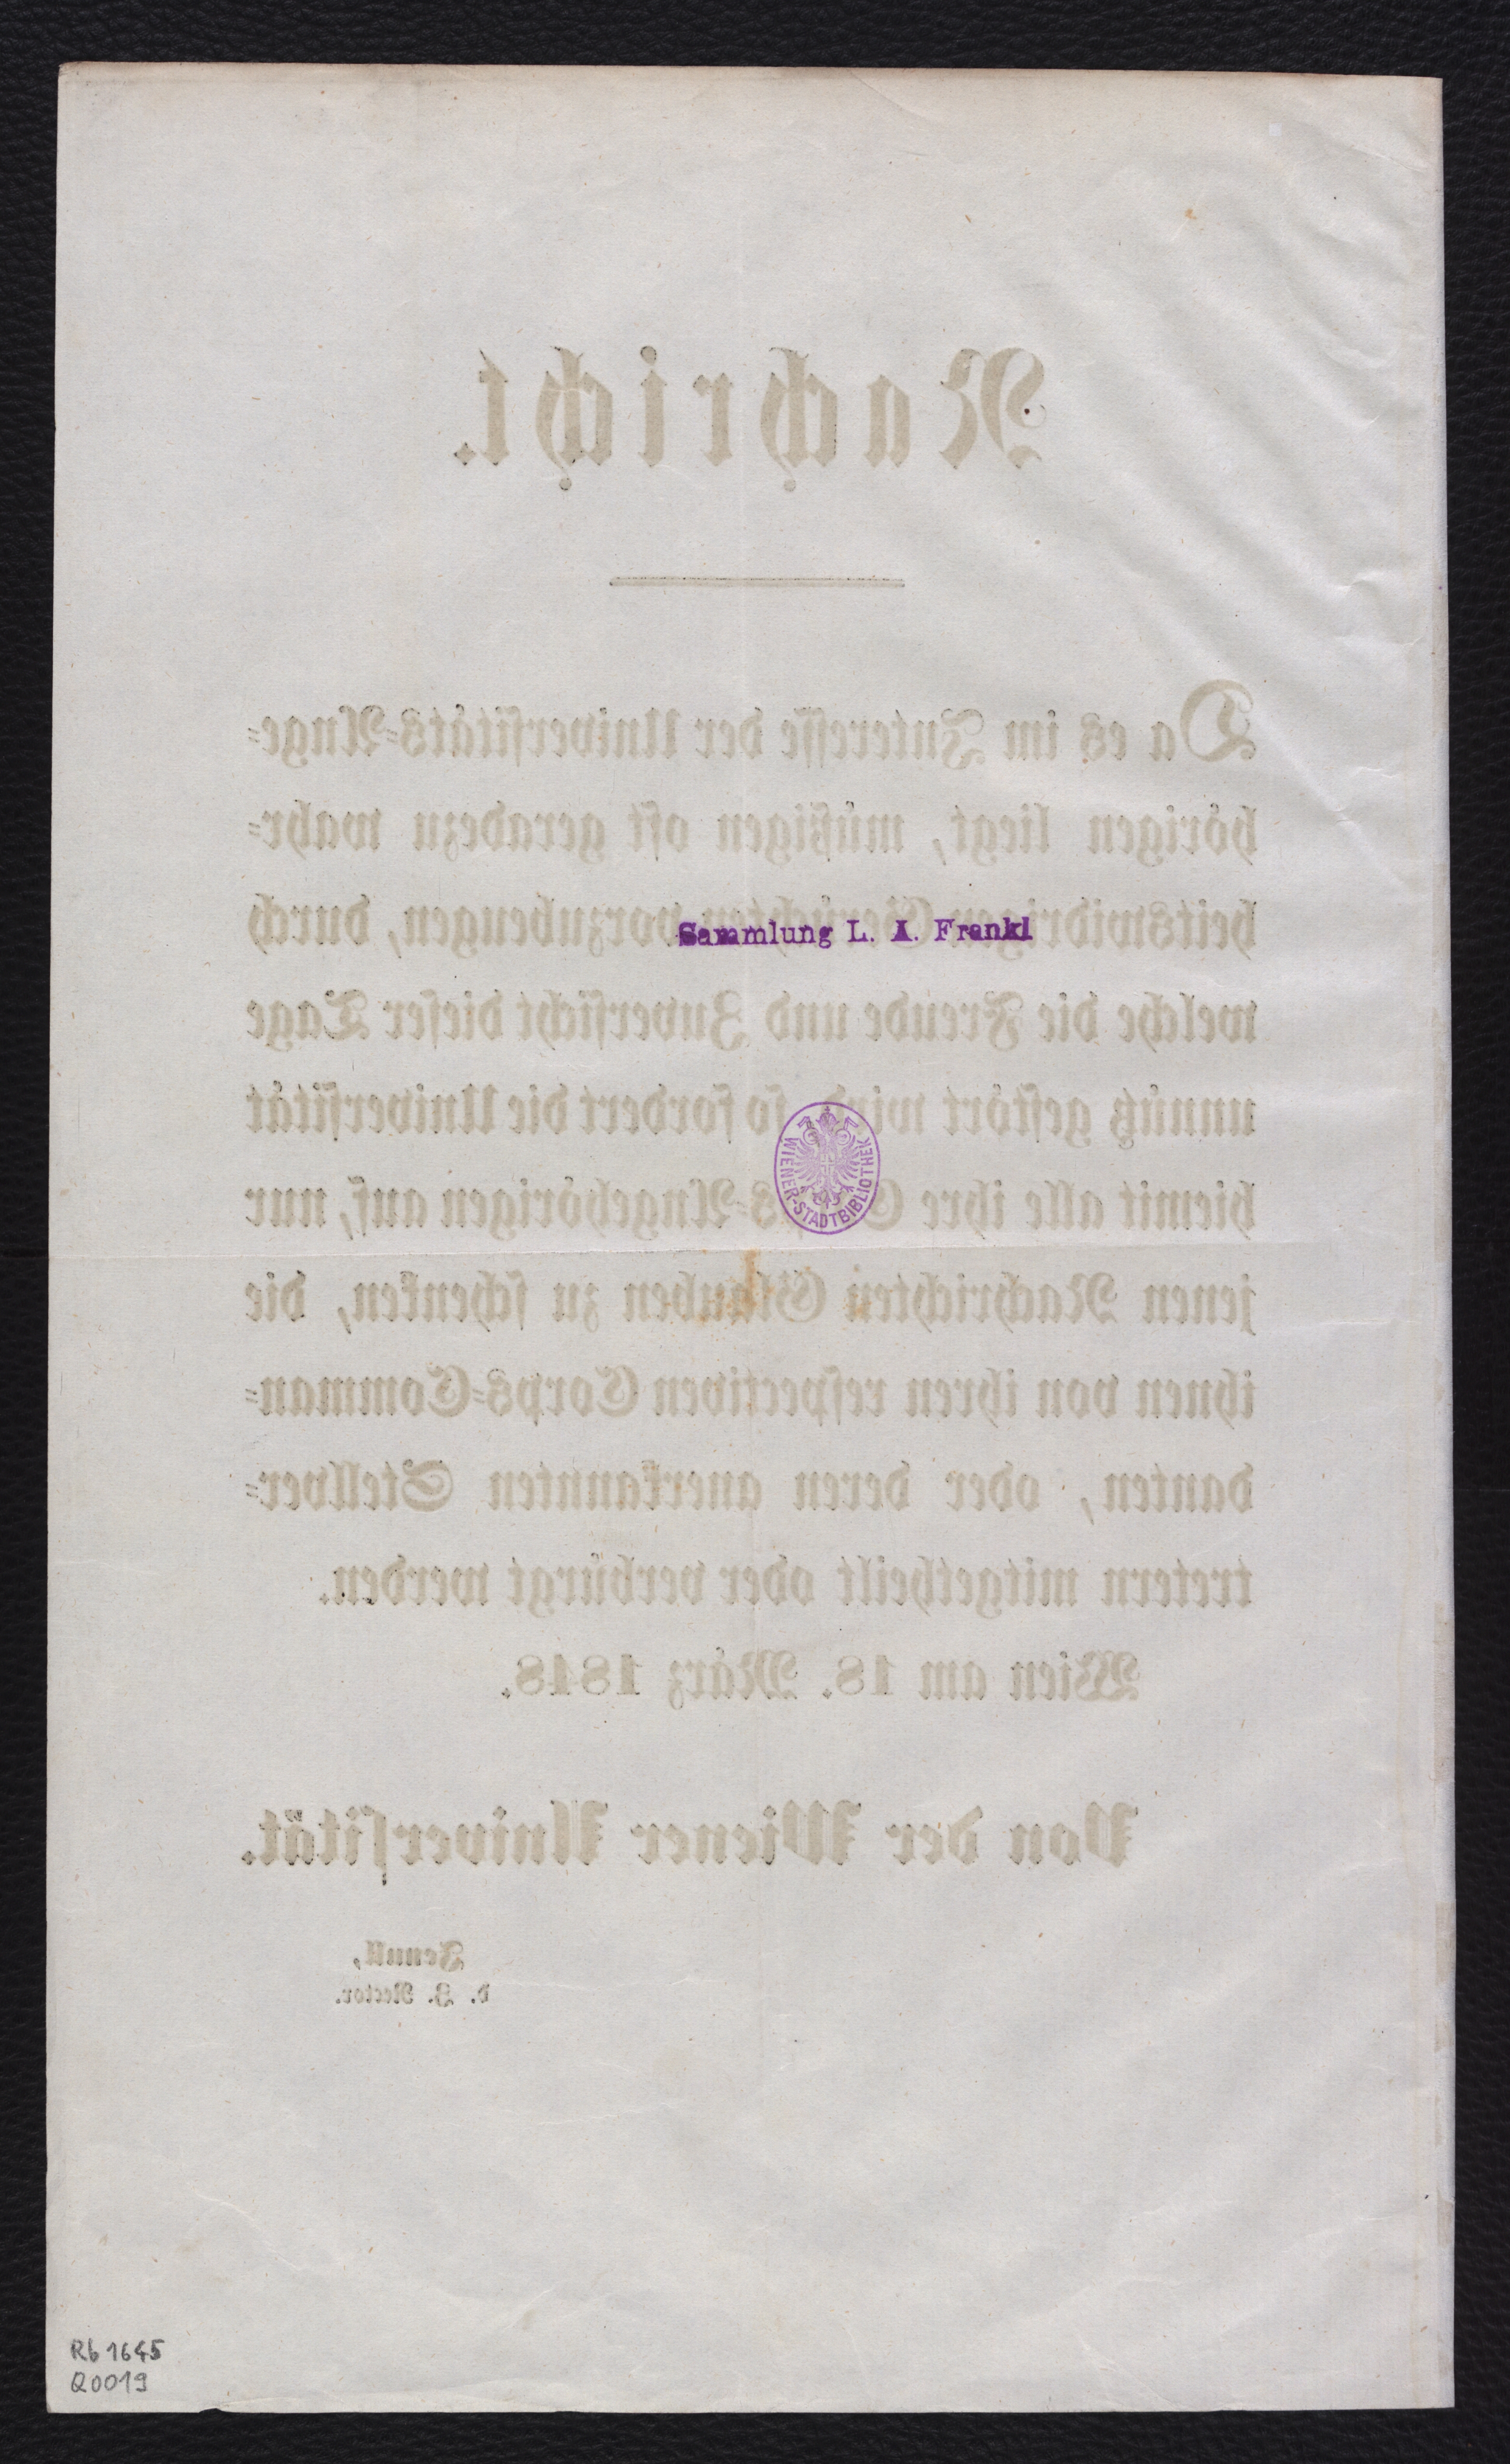 Nachricht.
Da es im Interesse der Universitäts=Ange=
hörigen liegt, müßigen oft geradezu wahr=
heitswidrigen Gerüchten vorzubeugen, durch
Sammlung L. A. Frankl
welche die Freude und Zuversicht dieser Tage
unnütz gestört wird, so fordert die Universität
hiemit alle ihre Corps=Angehörigen auf, nur
WIENER-STADTBIBLIOTHEK
jenen Nachrichten Glauben zu schenken, die
ihnen von ihren respectiven Corps=Comman=
danten, oder deren anerkannten Stellver=
tretern mitgetheilt oder verbürgt werden.
Wien am 18. März 1848.
Von der Wiener Universität.
Jenull,
d. Z. Rector.
Rb 1645
Q0019